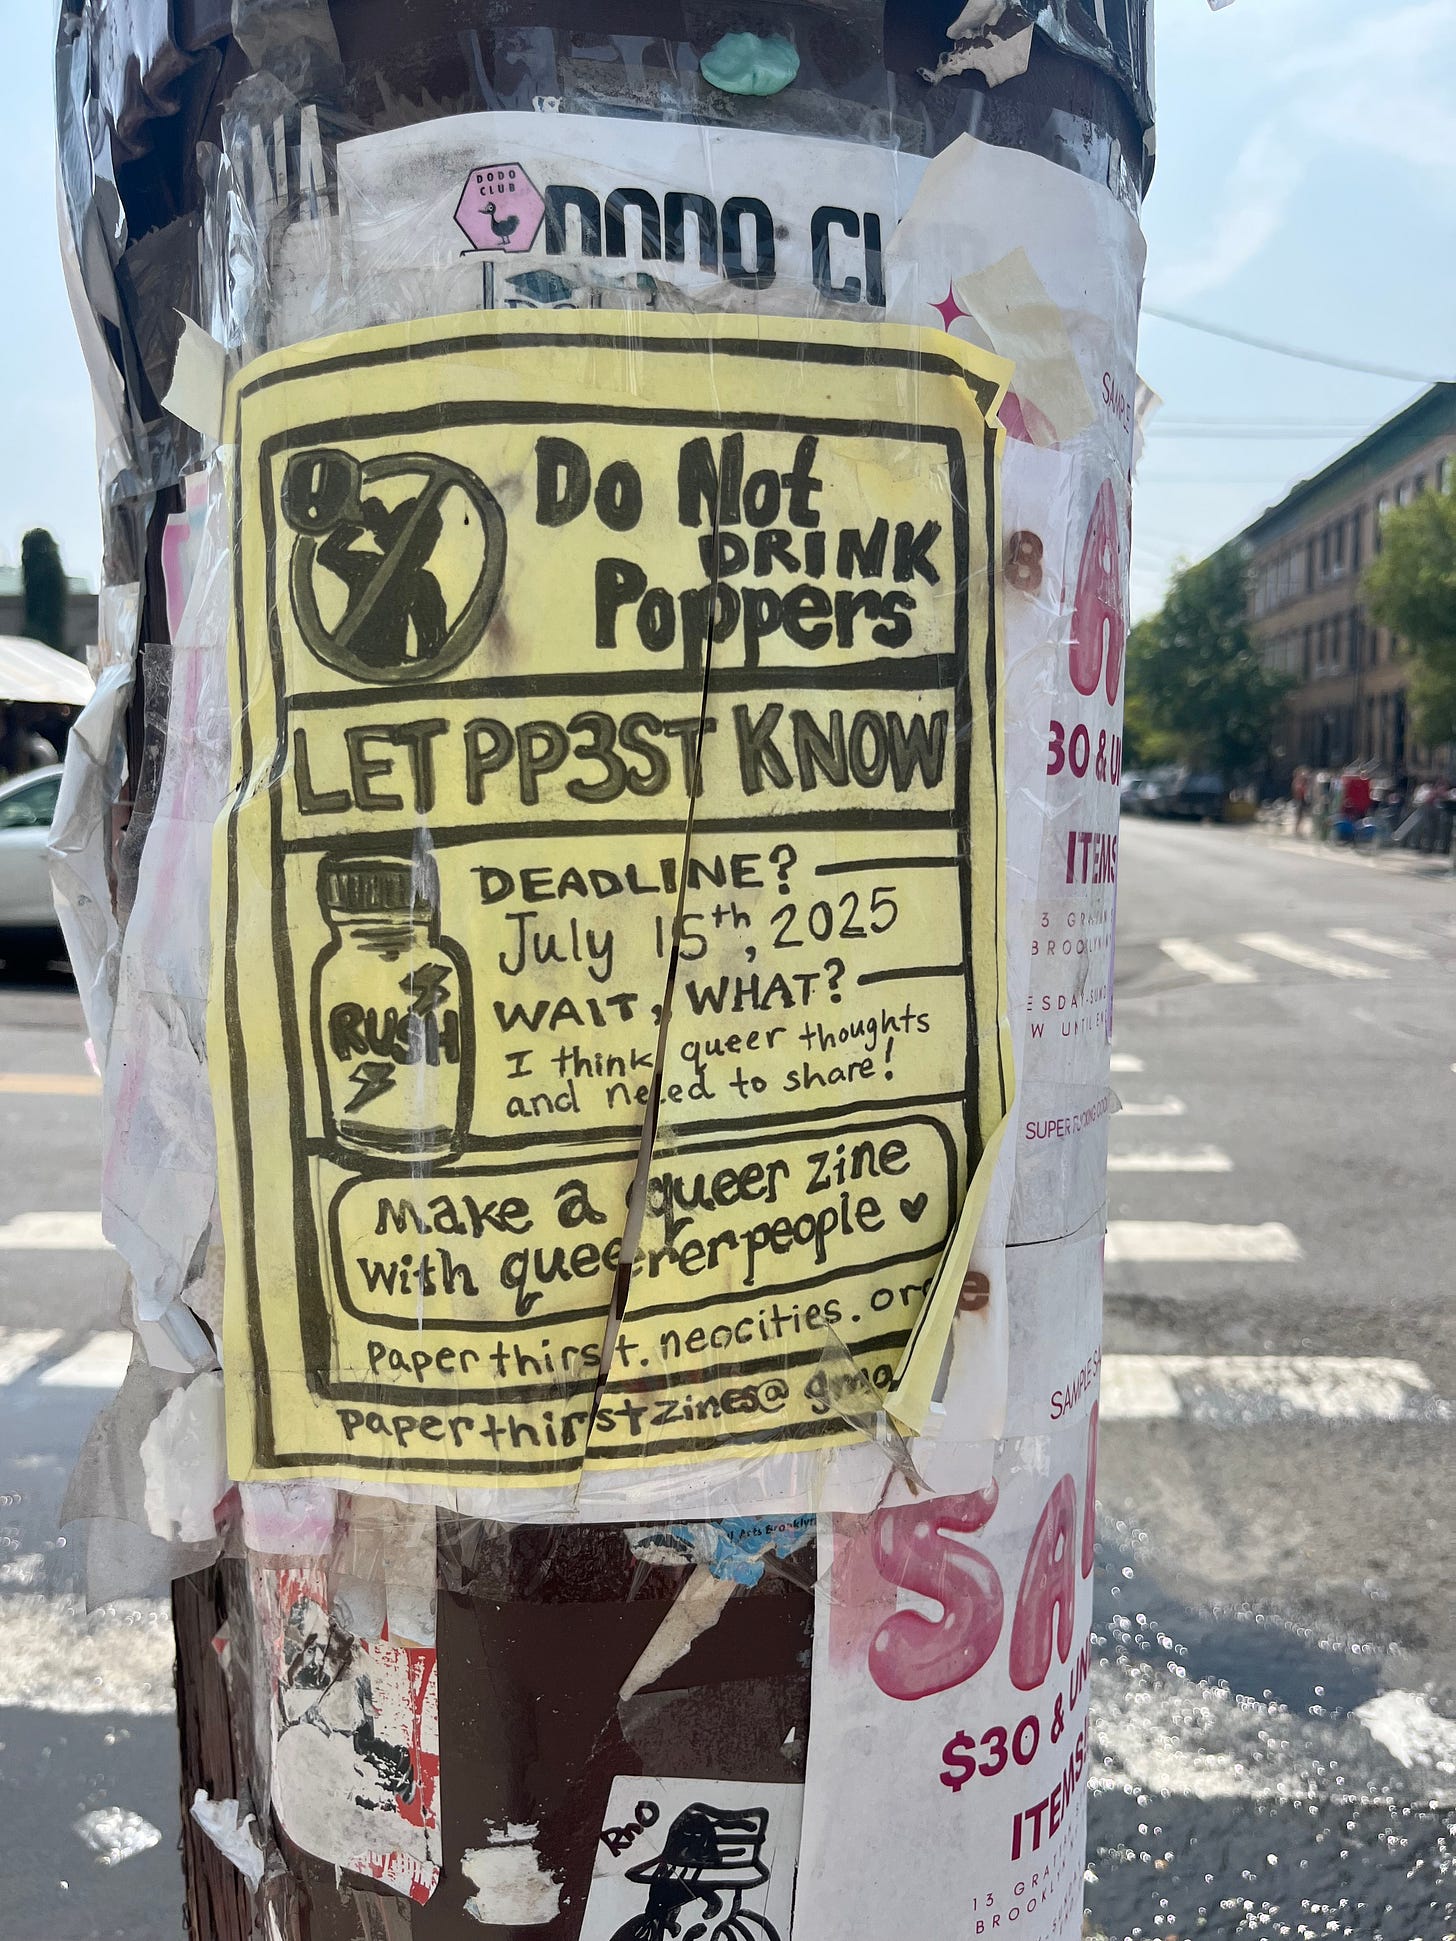 DODO
CLUB
DODO CL
Do Not
DRINK
Poppers
LET PP3ST KNOW
DEADLINE?
July 15th, 2025
WAIT, WHAT?
RUSH
I think queer thoughts
and need to share!
Make a queer zine
with queererpeople
paperthirst.neocities.org
paperthirstzines@gma
SAMPLE
30 & U
ITEMS
BROOKLYN
SUPER FUCKING
SAMPLE
SA
$30 & UN
ITEMS
13 GRA
BROOKLYN
Arts Brooklyn
RnO